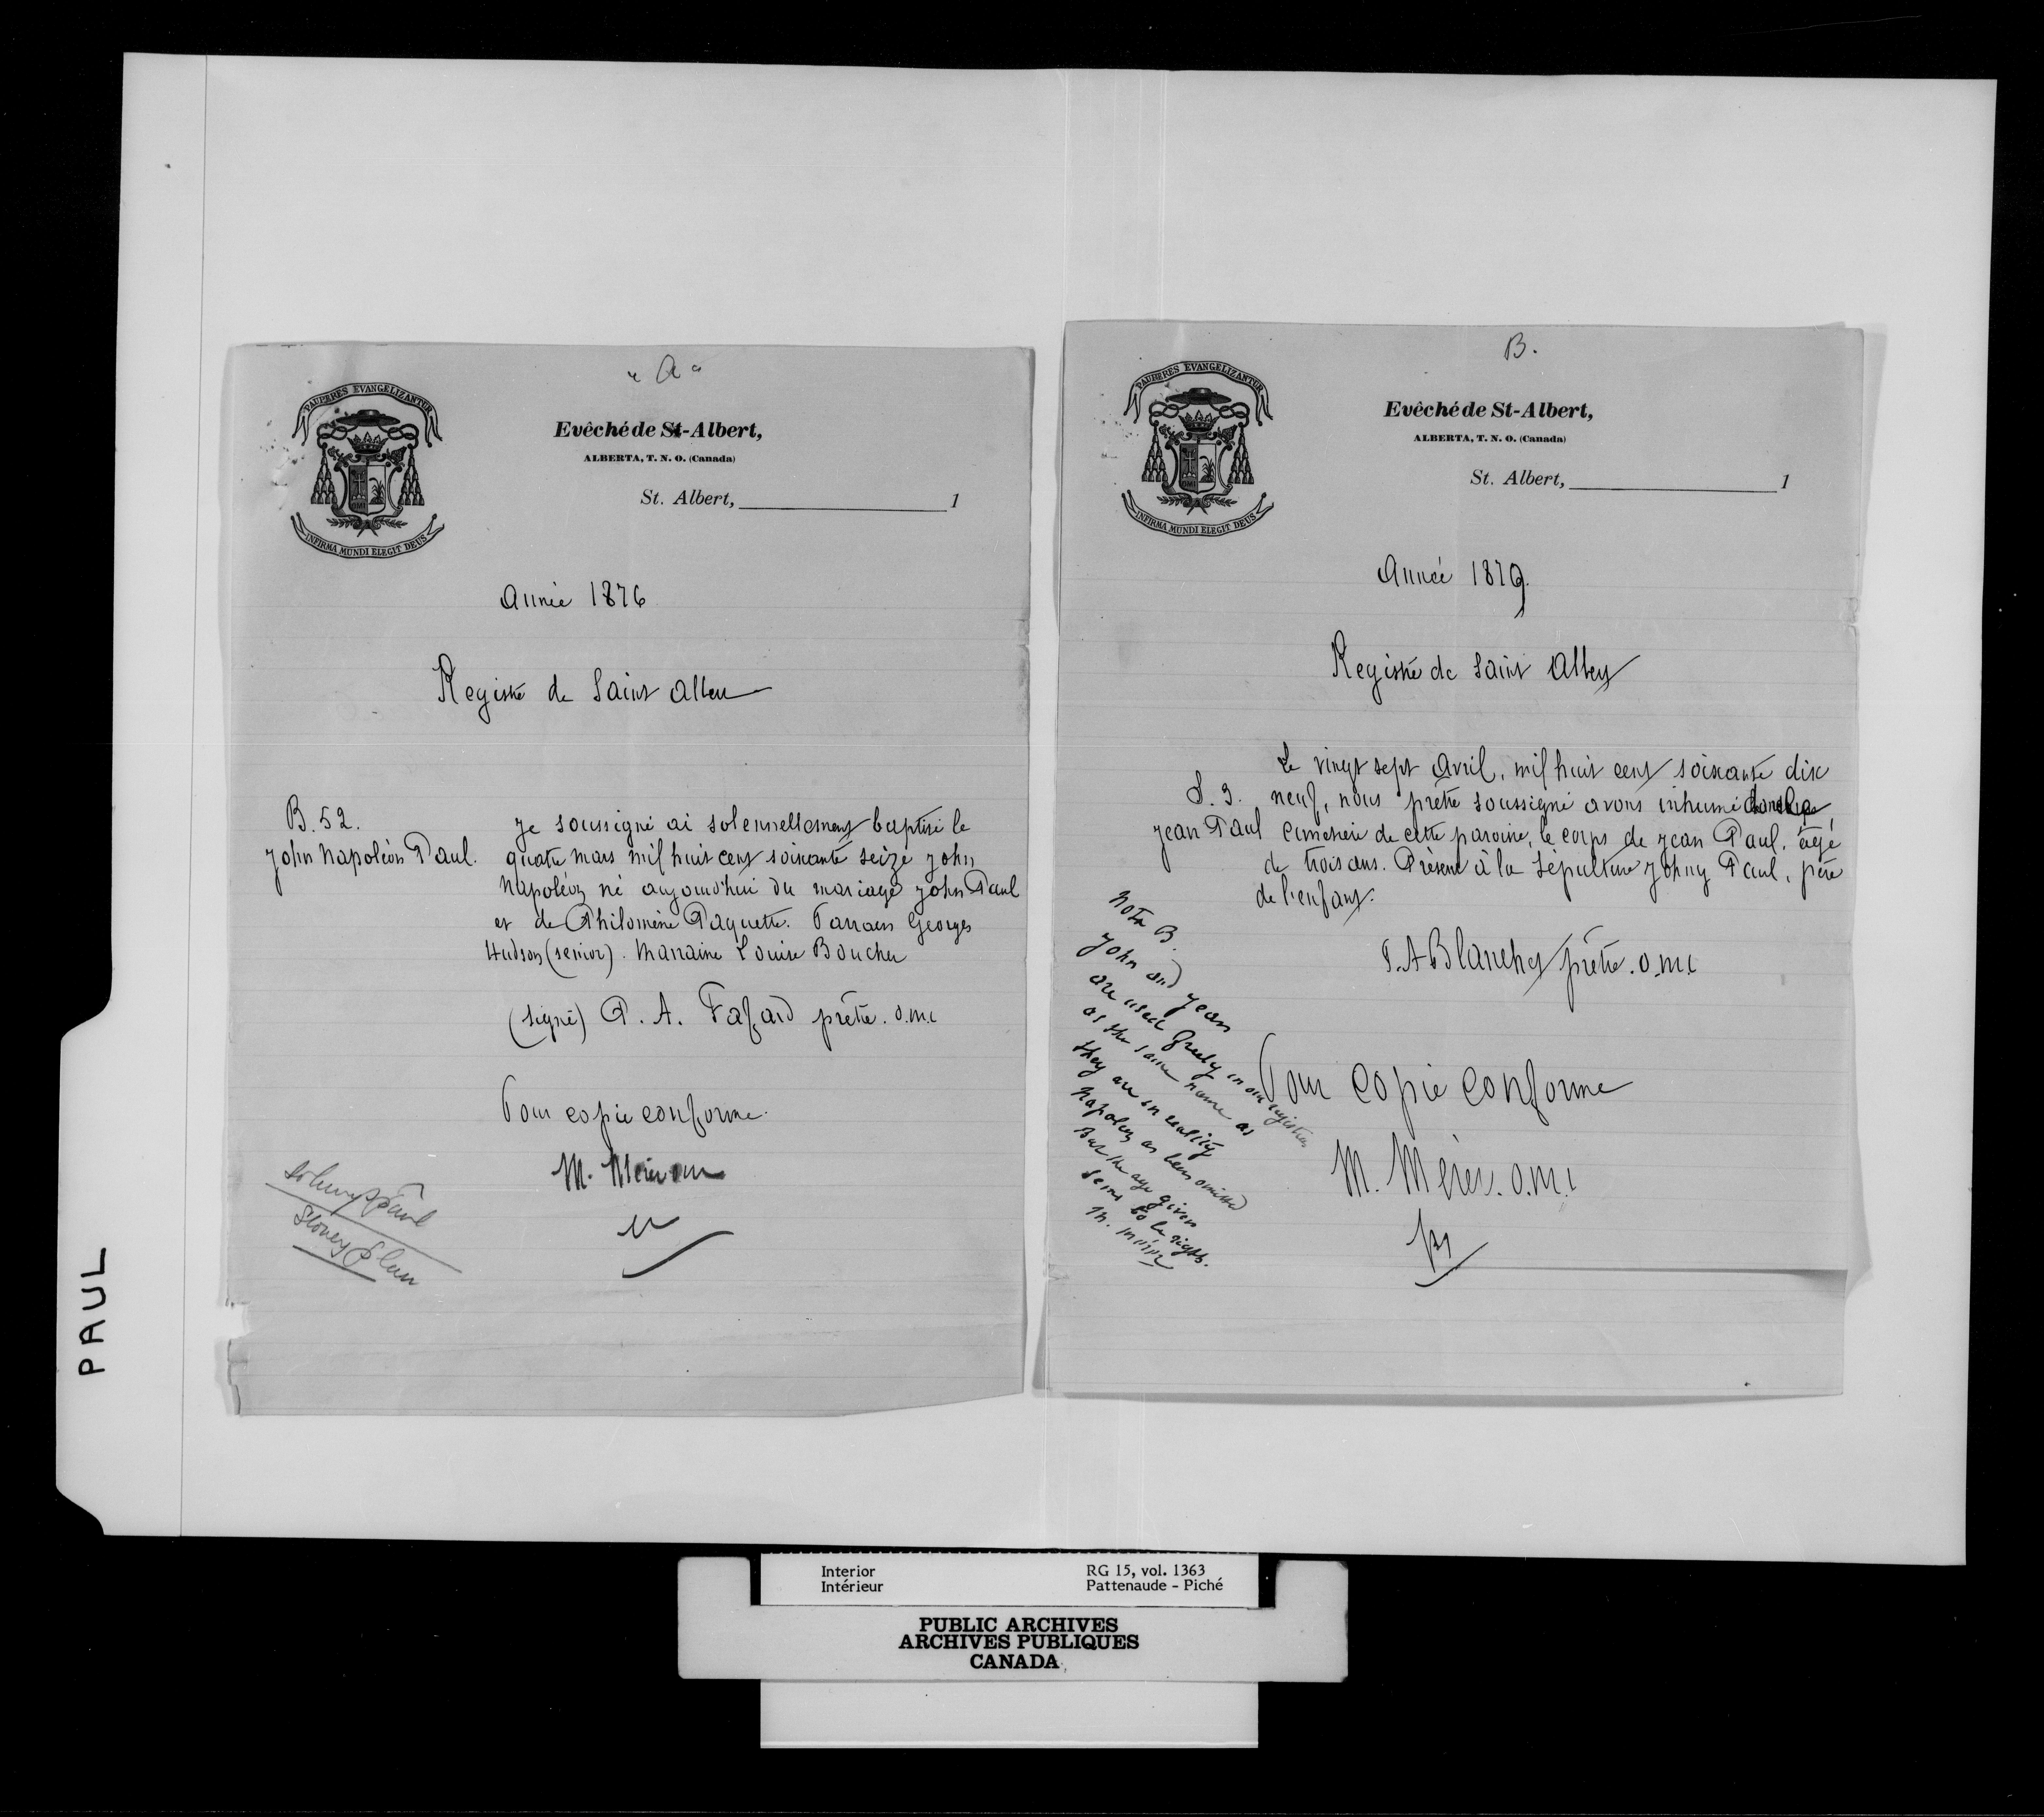 "A"
PAUPERES EVANGELIZANTUR
Evêché de St-Albert,
ALBERTA, T. N. O. (Canada)
St. Albert, 1
INFIRMA MUNDI ELEGIT DEUS
Année 1876
Registre de Saint Albert
B. 52.
John Napoléon Paul.
Je soussigné ai solennellement baptisé le
quatre mars mil huit cent soixante seize John
Napoléon né aujourd'hui du mariage John Paul
et de Philomène Paquette. Parrain Georges
Hudson (senior). Marraine Louise Boucher
(signé) P. A. Fafard prêtre. o.m.i
Pour copie conforme.
M. Mérer omi
Johnny Paul
Stoney Plain
B.
PAUPERES EVANGELIZANTUR
Evêché de St-Albert,
ALBERTA, T. N. O. (Canada)
St. Albert, 1
INFIRMA MUNDI ELEGIT DEUS
Année 1879.
Registre de Saint Albert
Le vingt sept Avril, mil huit cent soixante dix
S. 3. neuf, nous prêtre soussigné avons inhumé dans le
Jean Paul cimetière de cette paroisse, le corps de Jean Paul, âgé
de trois ans. Présent à la sépulture Johny Paul, père
de l'enfant.
Nota B.
John and Jean
are used freely in our registers
as the same name as
they are in reality
Napoleon as been omitted
But the age given
sems to be right.
M. Mérer
P. A Blanchet prêtre. o.m.i
Pour copie conforme
M. Mérer. o.m.i
PAUL
Interior
Intérieur
RG 15, vol. 1363
Pattenaude - Piché
PUBLIC ARCHIVES
ARCHIVES PUBLIQUES
CANADA